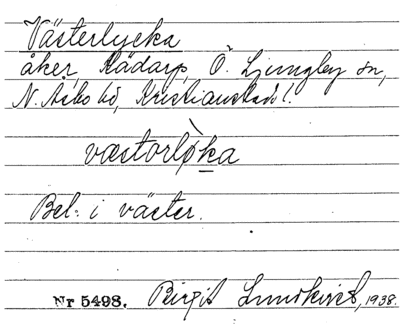 Västerlycka
åker, Rädarp, Ö. Ljungby sn,
N. Åsbo hd, Kristianstads l.
væstorlø̀ka
Bel. i väster.
Nr 5498. Birgit Lundkvist, 1938.